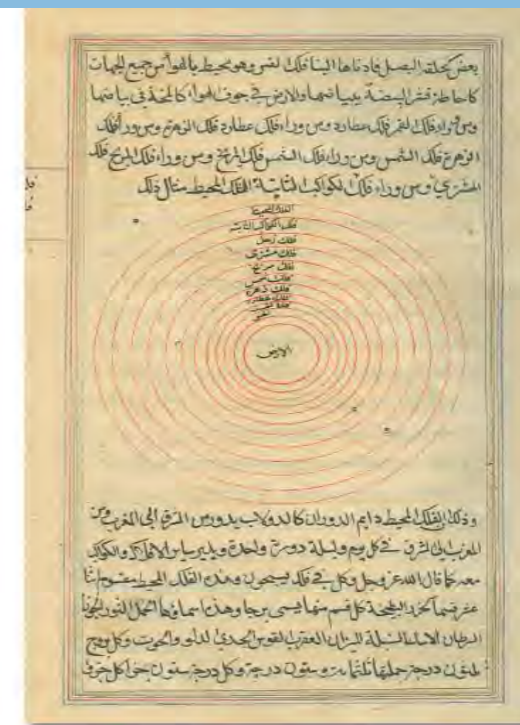 بعض كحلقة البصل فادناها الينا فلك القمر وهو محيط بالهواء من جميع الجهات
كاحاطة قشر البيضة ببياضها والارض في جوف الهواء كالمخ في بياضها
ومن وراء فلك القمر فلك عطارد ومن وراء فلك عطارد فلك الزهرة ومن وراء فلك
الزهرة فلك الشمس ومن وراء فلك الشمس فلك المريخ ومن وراء فلك المريخ فلك
المشتري ومن وراء فلك الكواكب الثابتة الفلك المحيط مثال ذلك
الفلك المحيط
فلك الكواكب الثابتة
فلك زحل
فلك مشتري
فلك مريخ
فلك شمس
فلك زهرة
فلك عطارد
فلك
قمر
الارض
وذلك ان الفلك المحيط دايم الدوران كالدولاب يدور من المشرق الى المغرب ومن
المغرب الى المشرق في كل يوم وليلة دورة واحدة ويدير ساير الافلاك والكواكب
معه كما قال الله عز وجل وكل في فلك يسبحون وهذه الفلك المحيط مقسوم اثنا
عشر قسما كل قسم منها يسمى برجا وهذه اسماؤها الحمل الثور الجوزا
السرطان الاسد السنبلة الميزان العقرب القوس الجدي الدلو والحوت وكل برج
ثلثون درجة جملتها ثلثمائة وستون درجة وكل درجة ستون جزوا كل جزو